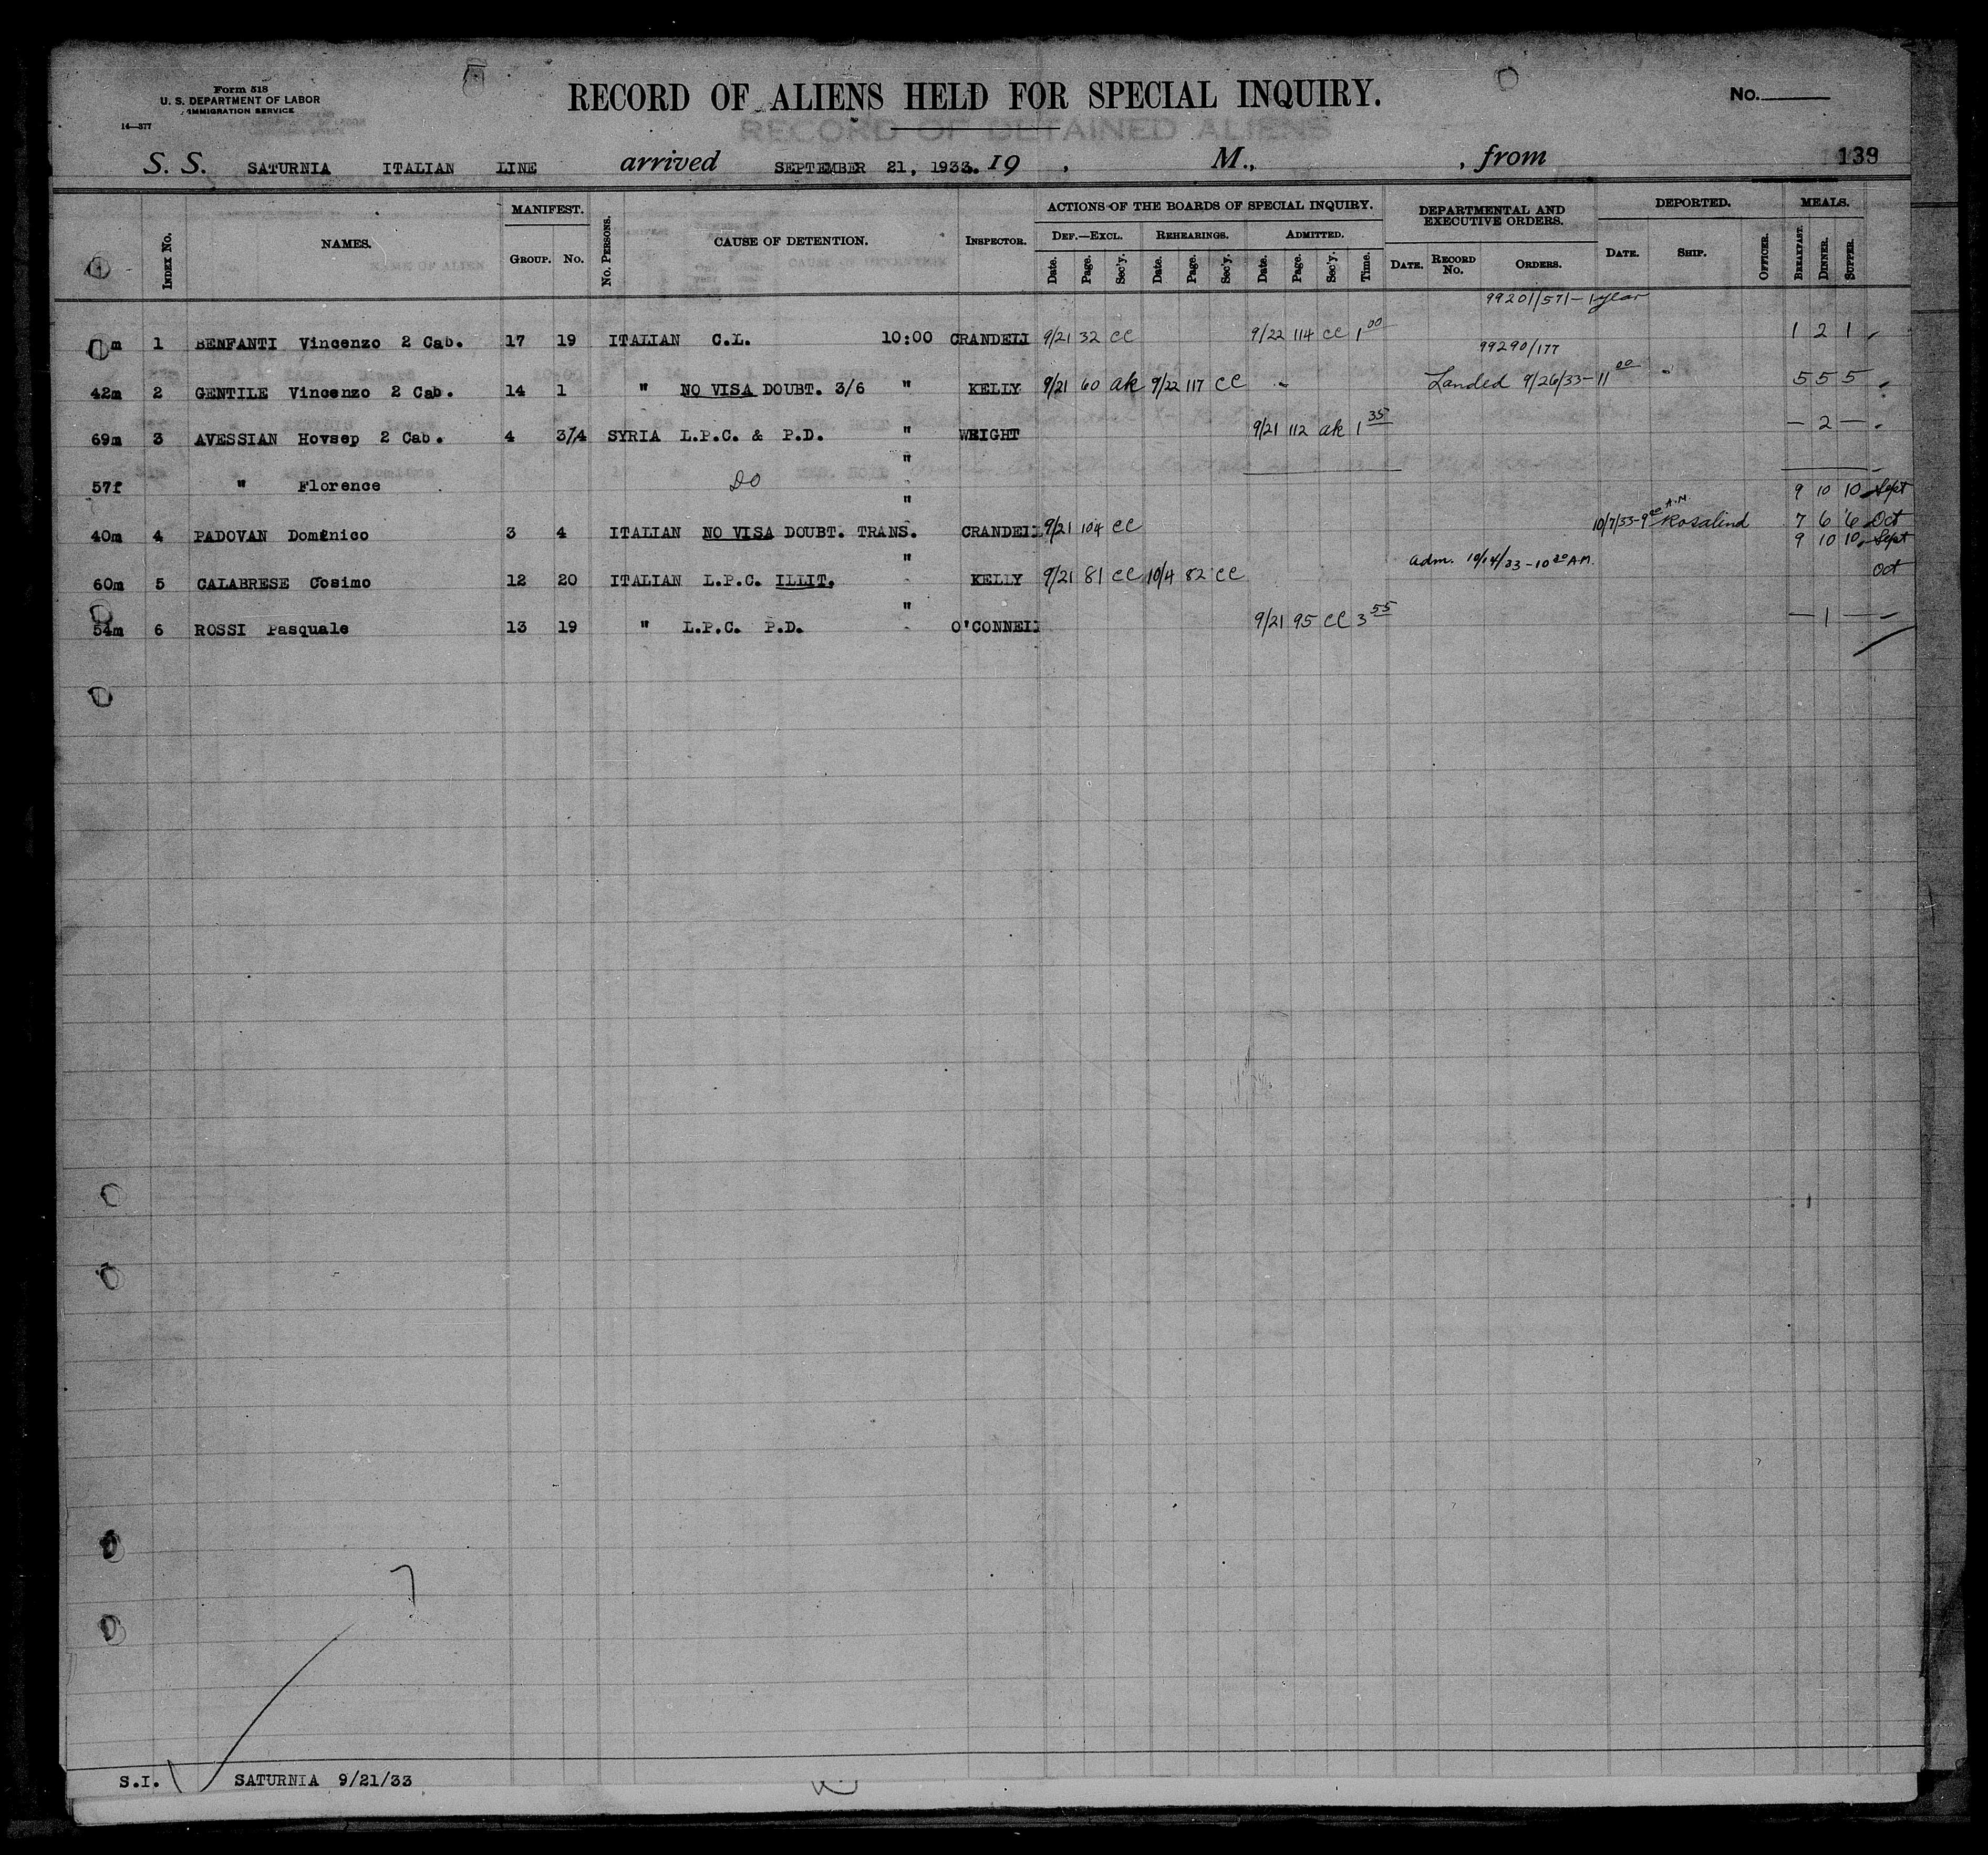 Form 518
U. S. DEPARTMENT OF LABOR
IMMIGRATION SERVICE
14—377
RECORD OF ALIENS HELD FOR SPECIAL INQUIRY.
No.
RECORD OF DETAINED ALIENS
S. S. SATURNIA ITALIAN LINE arrived SEPTEMBER 21, 1933. 19 , M., , from 139
INDEX No. NAMES. MANIFEST. GROUP. No. No. PERSONS. CAUSE OF DETENTION. INSPECTOR. ACTIONS OF THE BOARDS OF SPECIAL INQUIRY. DEF.—EXCL. Date. Page. Sec'y. REHEARINGS. Date. Page. Sec'y. ADMITTED. Date. Page. Sec'y. Time. DEPARTMENTAL AND EXECUTIVE ORDERS. DATE. RECORD No. ORDERS. DEPORTED. DATE. SHIP. OFFICER. MEALS. BREAKFAST. DINNER. SUPPER.
99201/571 - 1 year
m 1 BENFANTI Vincenzo 2 Cab. 17 19 ITALIAN C.L. 10:00 CRANDELL 9/21 32 CC 9/22 114 CC 1 00 1 2 1
99290/177
42m 2 GENTILE Vincenzo 2 Cab. 14 1 " NO VISA DOUBT. 3/6 " KELLY 9/21 60 ak 9/22 117 CC Landed 9/26/33 - 11 00 5 5 5
69m 3 AVESSIAN Hovsep 2 Cab. 4 3/4 SYRIA L.P.C. & P.D. " WRIGHT 9/21 112 ak 1 35 — 2 —
57f " Florence Do " 9 10 10 Sept
40m 4 PADOVAN Domenico 3 4 ITALIAN NO VISA DOUBT. TRANS. " CRANDELL 9/21 104 CC 10/7/33 - 9 00 A.M. Rosalind 7 6 6 Oct
9 10 10 Sept
60m 5 CALABRESE Cosimo 12 20 ITALIAN L.P.C. ILLIT. " KELLY 9/21 81 CC 10/4 82 CC adm. 10/4/33 - 10 20 AM. Oct
54m 6 ROSSI Pasquale 13 19 " L.P.C. P.D. " O'CONNELL 9/21 95 CC 3 55 — 1 —
S.I. SATURNIA 9/21/33